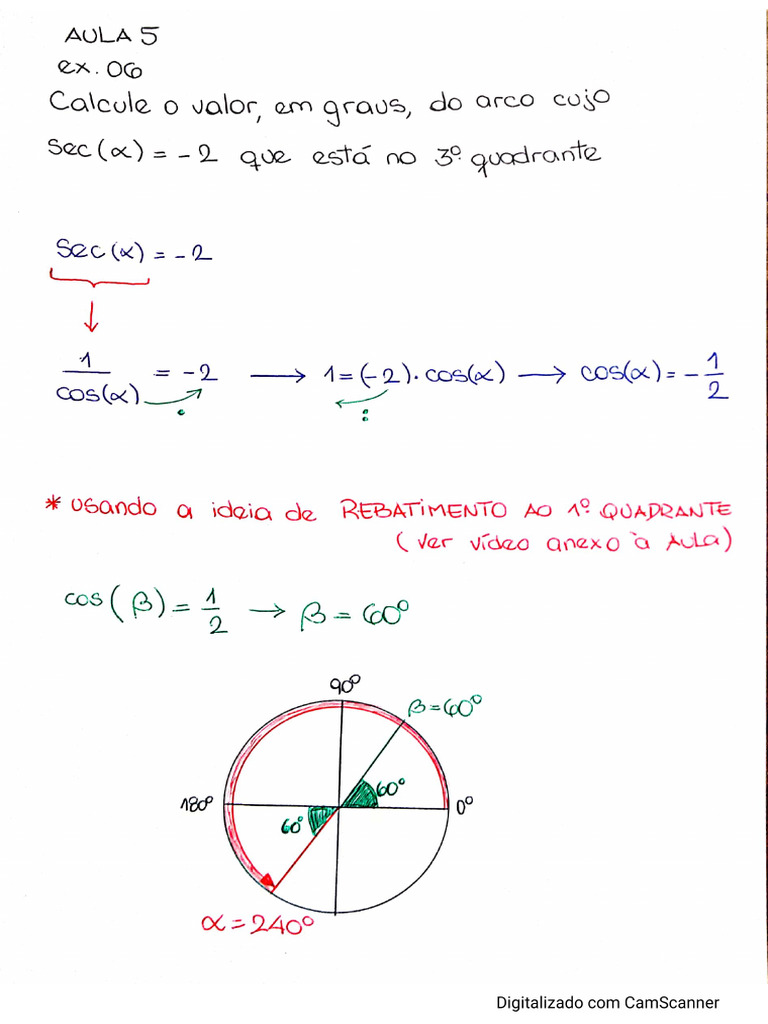 AULA 5
ex. 06
Calcule o valor, em graus, do arco cujo
Sec(α) = -2 que está no 3º quadrante
Sec(α) = -2
1/cos(α) = -2 → 1 = (-2) · cos(α) → cos(α) = -1/2
· :
* Usando a ideia de REBATIMENTO AO 1º QUADRANTE
(ver vídeo anexo à AULA)
cos(β) = 1/2 → β = 60º
90º
β = 60º
180º 60º 0º
60º
α = 240º
Digitalizado com CamScanner